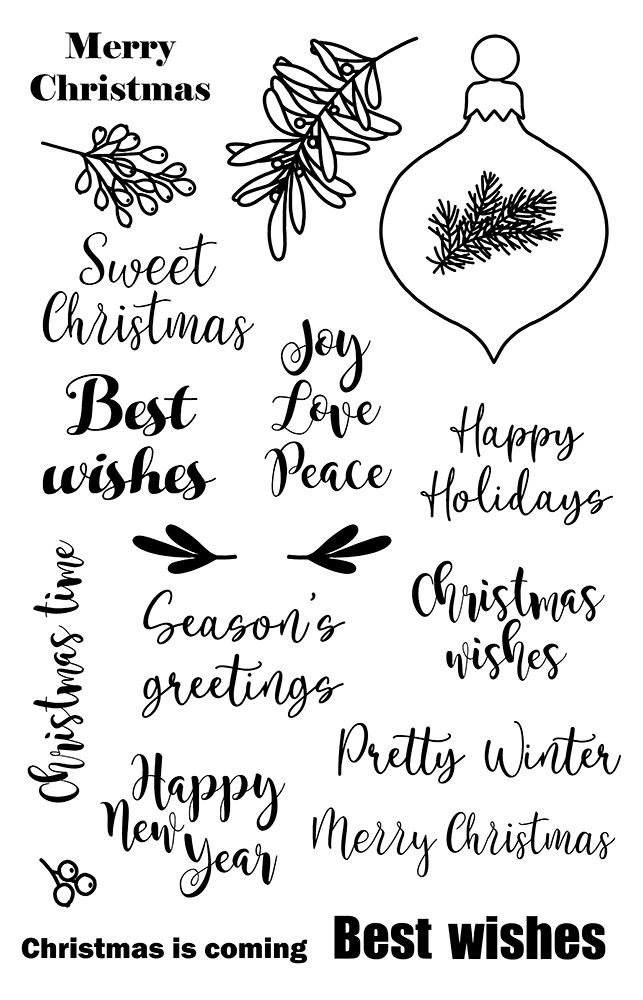 Merry
Christmas
Sweet
Christmas
Joy
Love
Peace
Best
wishes
Happy
Holidays
Christmas time
Season's
greetings
Christmas
wishes
Pretty Winter
Happy
New Year
Merry Christmas
Christmas is coming
Best wishes